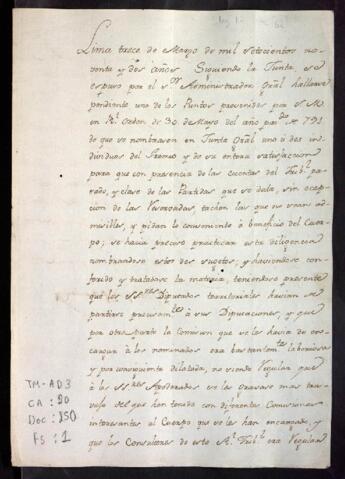 Lima trece de Marzo de mil setecientos no-
venta y dos años. Siguiendo la Junta, se
espuso por el Sor Administrador Gral hallarse
pendiente uno de los Puntos prevenidos por S. M.
en Rl Orden de 30 de Mayo del año pdo de 791
de que se nombrasen en Junta Gral uno ó dos in-
dividuos del Gremio y de su entera satisfaccion
para que con presencia de las Cuentas del Tribl pa-
sado, y clave de las Partidas que se data, sin ecep-
cion de las Reservadas, tachen las que no sean ad-
misibles, y pidan lo conveniente á beneficio del Cuer-
po; se hacia preciso practicar esta diligencia
nombrandose estos dos sugetos, y habiendose con-
ferido y tratadose la materia, teniendose presente
que los SSres Diputados territoriales havian de
partirse precisamte á sus Diputaciones, y que
por otra parte la Comision que se les havia de en-
cargar á los nominados era bastantemte laboriosa
y por consiguiente dilatada, no siendo Regular que
á los SSres Apoderados se les gravase mas
del que han tenido con diferentes Comisiones
interesantes al Cuerpo que se les han encargado, y
que los Consultores de este Rl Tribl era Regular
TM-AD3
CA: 20
Doc: 350
Fs: 1